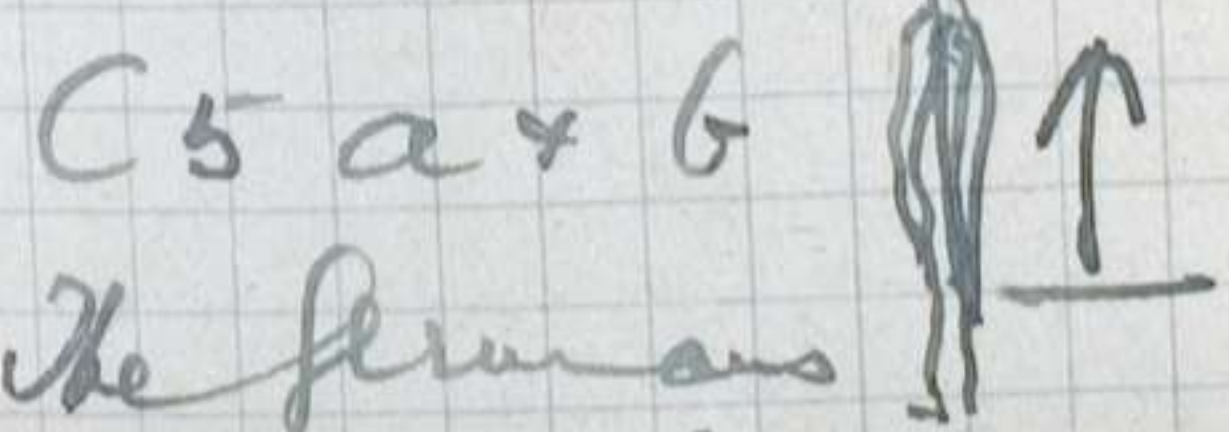 C 5 a + b
The Germans